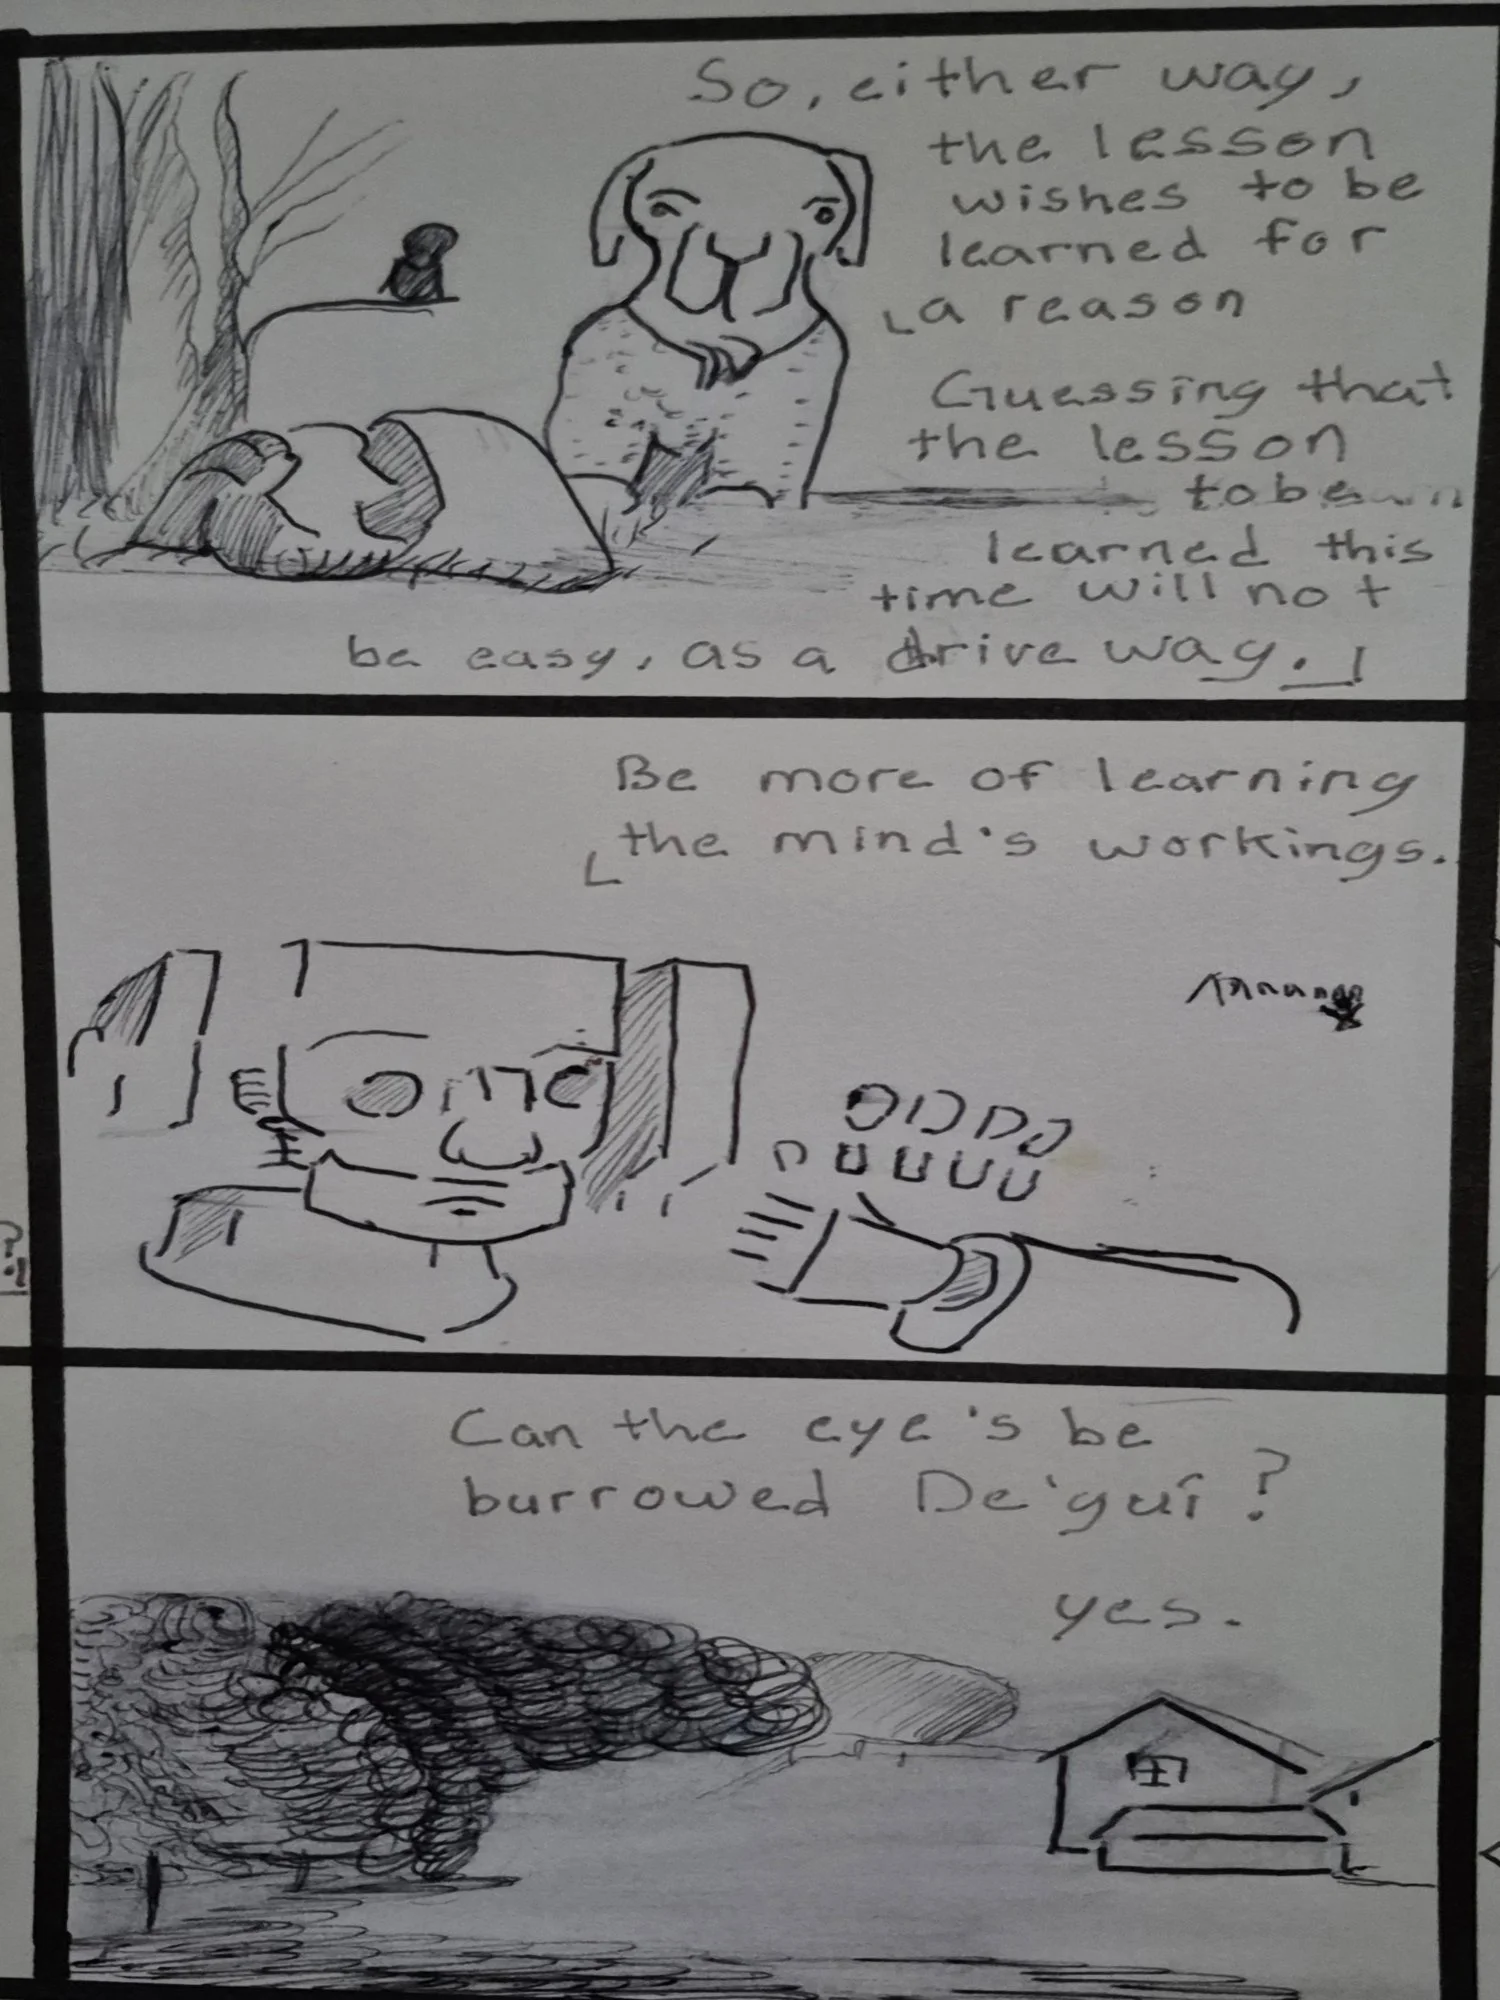 So, either way,
the lesson
wishes to be
learned for
a reason
Guessing that
the lesson
to be
learned this
time will not
be easy, as a drive way.
Be more of learning
the mind's workings.
Can the eye's be
burrowed De'guí?
yes.